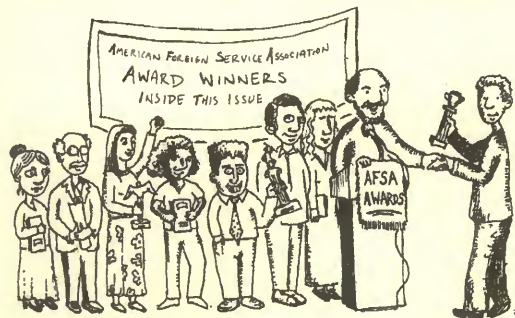 AMERICAN FOREIGN SERVICE ASSOCIATION
AWARD WINNERS
INSIDE THIS ISSUE
AFSA
AWARDS